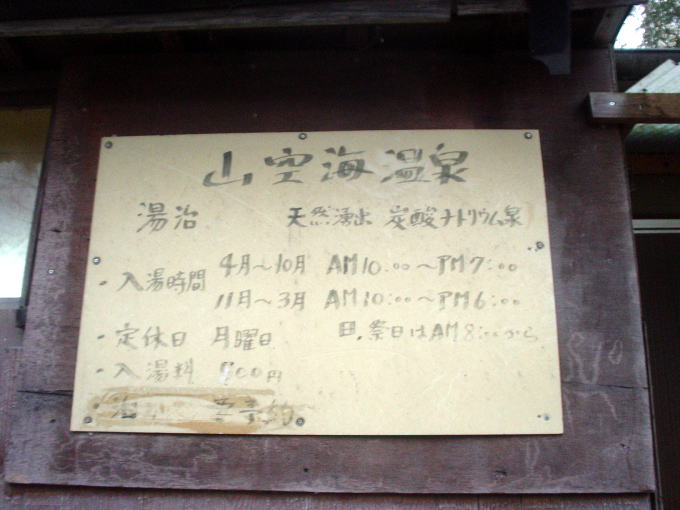 山空海温泉
湯治 天然湧出 炭酸ナトリウム泉
・入湯時間 4月〜10月 AM10:00〜PM7:00
11月〜3月 AM10:00〜PM6:00
・定休日 月曜日 日.祭日はAM8:00から
・入湯料 00円